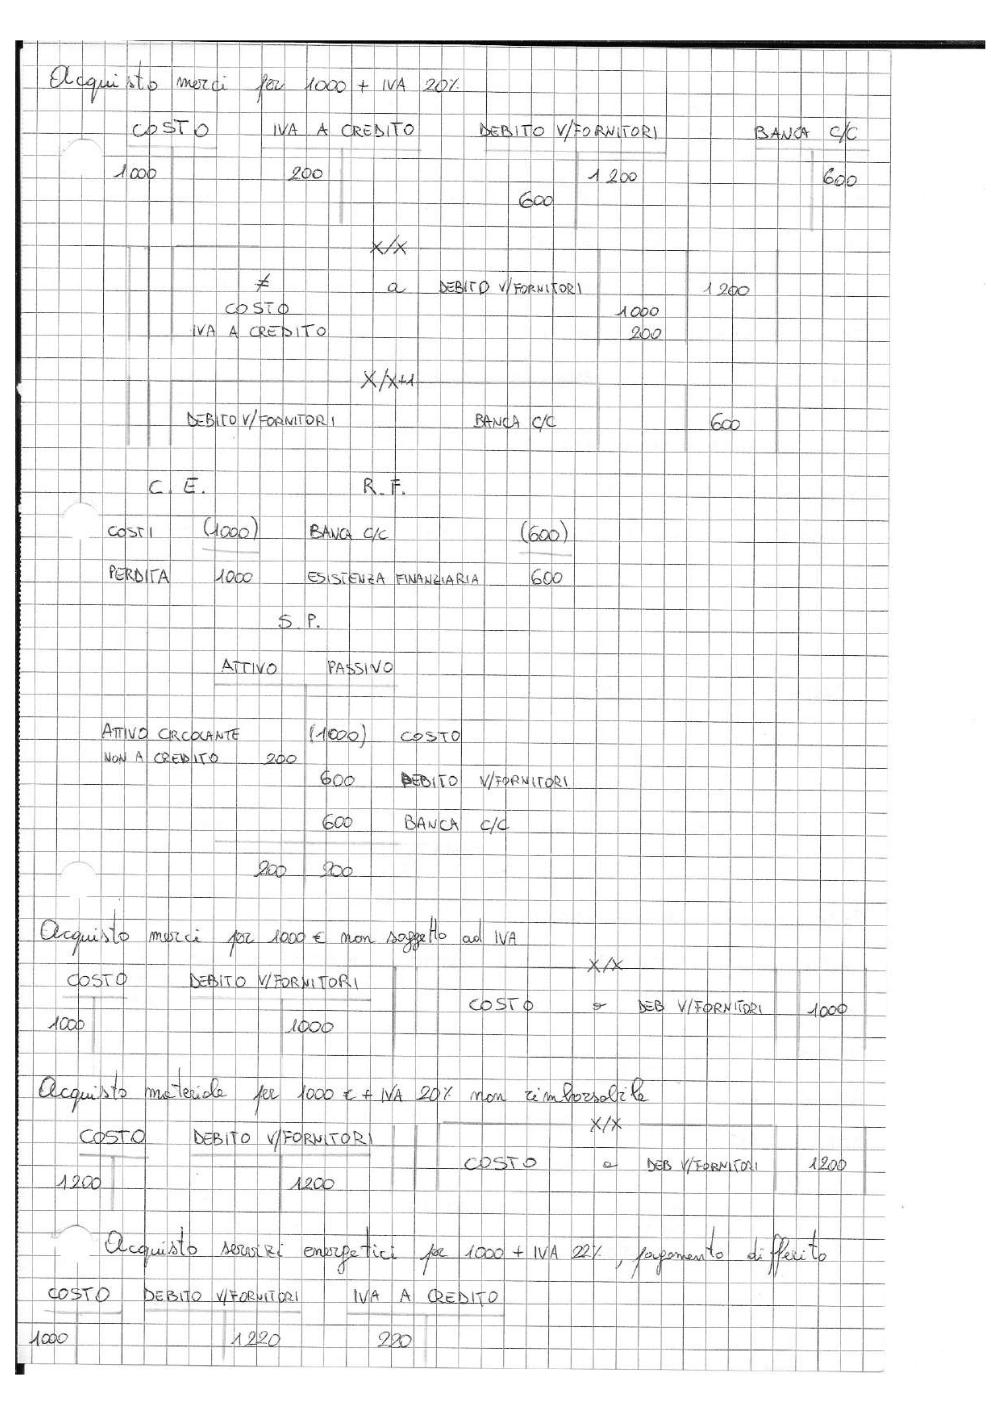 Acquisto merci per 1000 + IVA 20%
COSTO IVA A CREDITO DEBITO V/FORNITORI BANCA C/C
1000 200 1200 600
600
X/X
≠ a DEBITO V/FORNITORI 1200
COSTO 1000
IVA A CREDITO 200
X/X+1
DEBITO V/FORNITORI BANCA C/C 600
C.E. R.F.
COSTI (1000) BANCA C/C (600)
PERDITA 1000 ESISTENZA FINANZIARIA 600
S.P.
ATTIVO PASSIVO
ATTIVO CIRCOLANTE (1000) COSTO
NON A CREDITO 200
600 DEBITO V/FORNITORI
600 BANCA C/C
200 200
Acquisto merci per 1000 € non soggetto ad IVA
X/X
COSTO DEBITO V/FORNITORI
COSTO a DEB V/FORNITORI 1000
1000 1000
Acquisto materiale per 1000 € + IVA 20% non rimborsabile
X/X
COSTO DEBITO V/FORNITORI
COSTO a DEB V/FORNITORI 1200
1200 1200
Acquisto servizi energetici per 1000 + IVA 22%, pagamento differito
COSTO DEBITO V/FORNITORI IVA A CREDITO
1000 1220 220